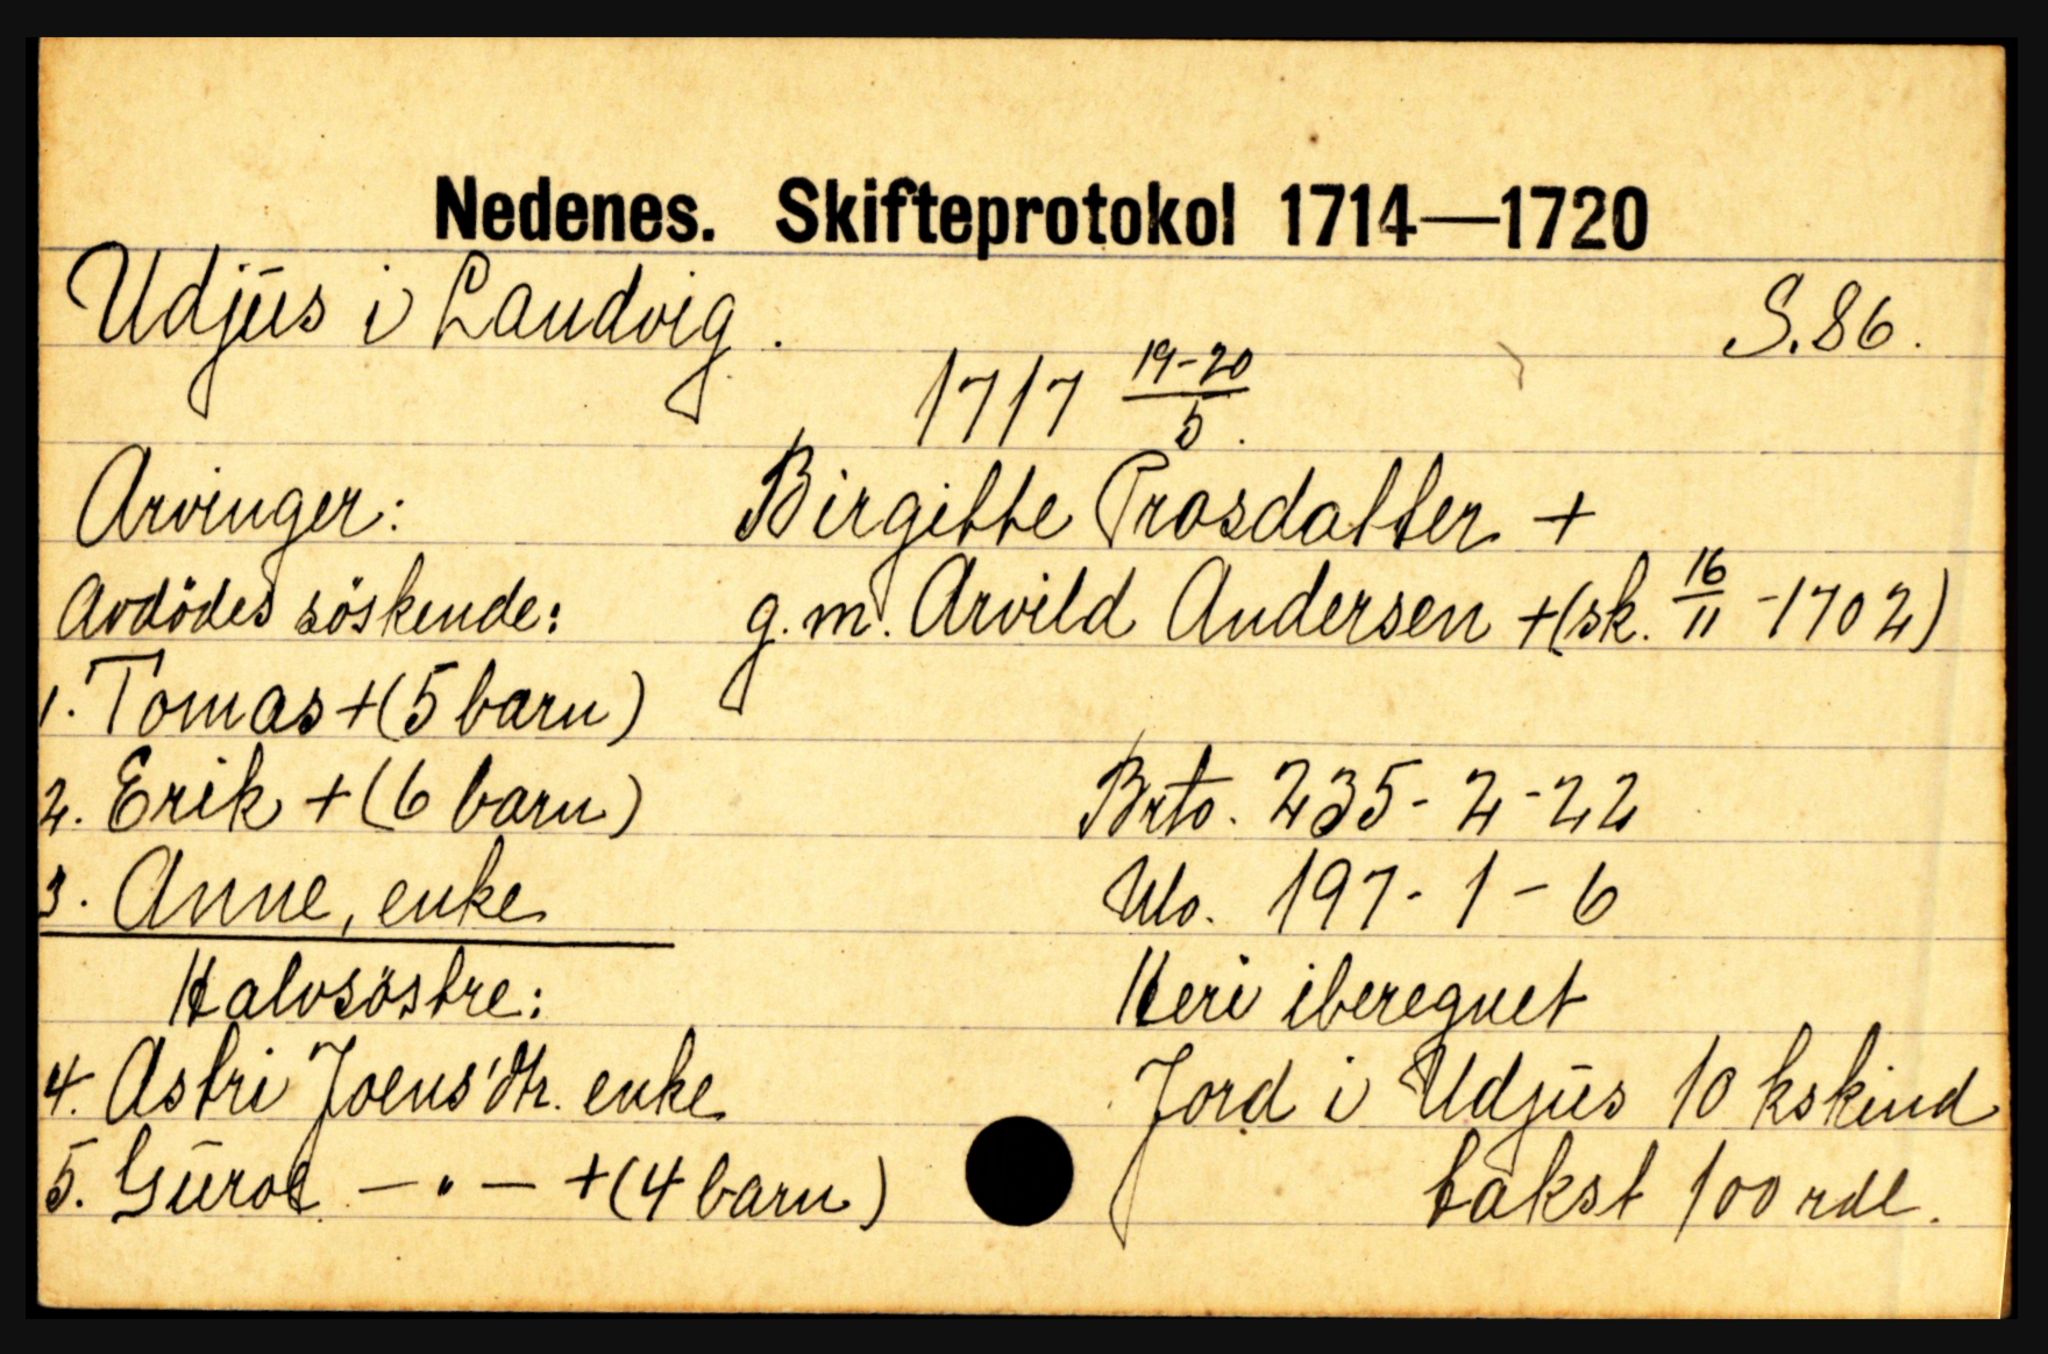 Nedenes. Skifteprotokol 1714—1720
Udjus i Landvig. S. 86.
1717 19-20/5.
Arvinger:
Avdödes söskende:
1. Tomas + (5 barn)
2. Erik + (6 barn)
3. Anne, enke
Halvsöstre:
4. Astri Joens'dtr. enke
5. Guroe — " — + (4 barn)
Birgitte Prosdatter +
g. m. Arvild Andersen + (sk. 16/11 - 1702)
Brto. 235 - 2 - 22
Nto. 197 - 1 - 6
Heri iberegnet
Jord i Udjus 10 kskind
takst 100 rdl.